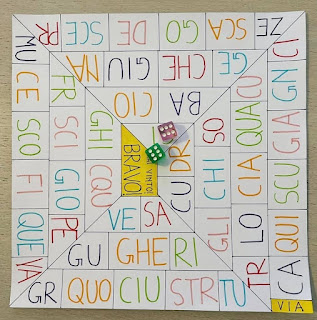 VIA
CA
QUI
SCU
GIA
GN
CI
ZE
SCA
GO
DE
SCE
PR
MU
CE
SCO
FI
QUE
VA
GR
QUO
CIU
STR
TU
TR
LO
CIA
QUA
CU
GE
CHE
GIU
NA
FR
SCI
GIO
PE
GU
GHE
RI
GLI
CHI
SO
BA
CIO
GHI
CQU
VE
SA
CU
DR
BRAVO
VINTO!